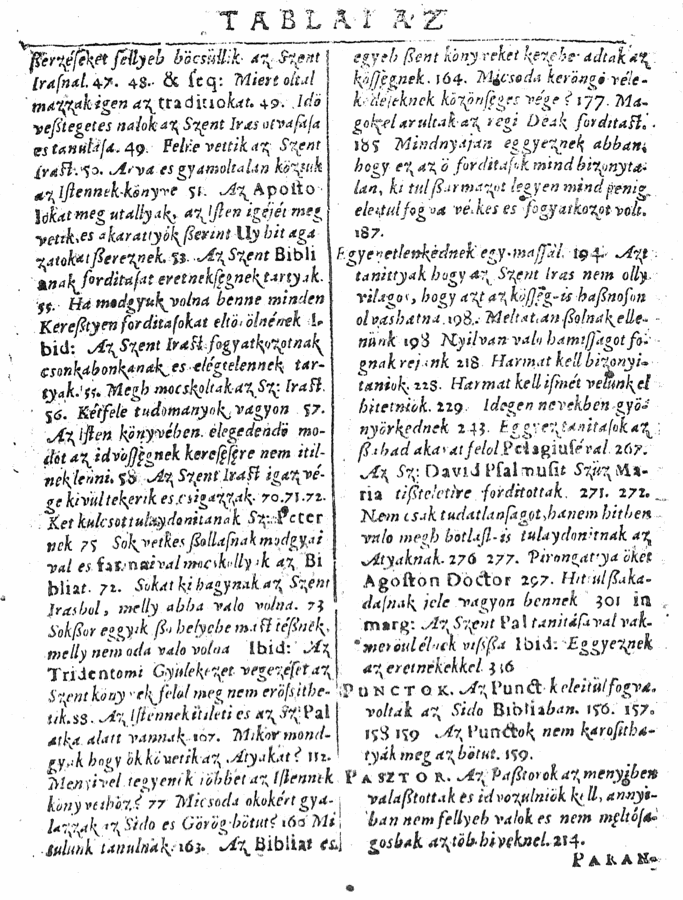 TABLAI AZ
ßerzéseket fellyeb böcsüllik az Szent
Irasnal. 47. 48. & seq: Miert oltal
mazzak igen az traditiokat. 49. Idö
veßtegetes nalok az Szent Iras otvasasa
es tanulása. 49. Felre vettik az Szent
Irast. 50. Arva es gyamoltalan közsuk
az Istennek könyve 51. Az Aposto
lokat meg utallyak, az Isten igéjét meg
vetik, es akarattyök ßerint Uy hit aga
zatokat ßereznek. 53. Az Szent Bibli
anak forditasat eretnekségnek tartyak.
55. Ha modgyuk volna benne minden
Kereßtyen forditasokat eltörölnének I-
bid: Az Szent Irast fogyatkozotnak
csonkabonkanak es elégtelennek tar-
tyak. 55. Megh mocskoltak az Sz: Irast.
56. Kétfele tudomanyok vagyon 57.
Az Isten könyvében elegedendö mo-
dot az idvösségnek keresésére nem itil-
nek lenni. 58 Az Szent Irast igaz vé-
ge kivül tekerik es csigazzak. 70.71.72.
Ket kulcsot tulaydonitanak Sz: Peter
nek 75 Sok vetkes ßollasnak modgyai
val es farmaival mocskollyak az Bi
bliat. 72. Sokat ki hagynak az Szent
Irasbol, melly abba valo volna. 73
Sokßor eggyik ßo helyebe mast teßnek,
melly nem oda valo volna Ibid: Az
Tridentomi Gyülekezet vegezését az
Szent könyvek felol meg nem erösithe-
tik. 88. Az Istennek itileti es az Sz: Pal
atka alatt vannak. 107. Mikor mond-
gyak hogy ök követik az Atyakat? 112.
Menyivel tegyenik többet az Istennek
könyveihöz? 77 Micsoda okokért gya-
lazzak az Sido es Görög bötut? 160 Mi
tulunk tanulnak. 163. Az Bibliat es
egyeb ßent könyveket kezebe adtak az
kösségnek. 164. Micsoda keröngö véle-
kedejeknek közönséges vége? 177. Ma-
gok el arultak az regi Deak forditast.
185 Mindnyajan eggyeznek abban,
hogy ez az ö forditasok mind bizonyta-
lan, ki tul ßarmazot legyen mind penig
eleitul fogva vétkes es fogyatkozot volt.
187.
Egyenetlenkednek egy massal. 194 Azt
tanittyak hogy az Szent Iras nem olly
vilagos, hogy azt az kösség-is haßnoson
olvashatna. 198. Meltatlan ßolnak elle-
nünk 198 Nyilvan valo hamissagot fo-
gnak rejank 218 Harmat kell bizonyi-
taniok. 228. Harmat kell ismét velünk el
hitetniök. 229. Idegen nevekben gyö-
nyörkednek 243. Eggyez tanitasok az
ßabad akarat felol Pelagiuséval. 267.
Az Sz: David Psalmusit Szüz Ma-
ria tißteletire forditottak. 271. 272.
Nem csak tudatlansagot, hanem hitben
valo megh botlast-is tulaydonitnak az
Atyaknak. 276 277. Pirongattya öket
Agoston Doctor 297. Hitul ßaka-
dasnak jele vagyon bennek 301 in
marg: Az Szent Pal tanitásaval vak-
meröul élnek vißßa Ibid: Eggyeznek
az eretnekekkel 316
PUNCTOK. Az Punctok eleitül fogva.
voltak az Sido Bibliaban. 156. 157.
158 159 Az Punctok nem karositha-
tyák meg az bötut. 159.
PASZTOR. Az Paßtorok az menyiben
valaßtottak es idvozulniök kell, annyi-
ban nem fellyeb valok es nem meltósa-
gosbak az töb hiveknel. 214.
PARAN-